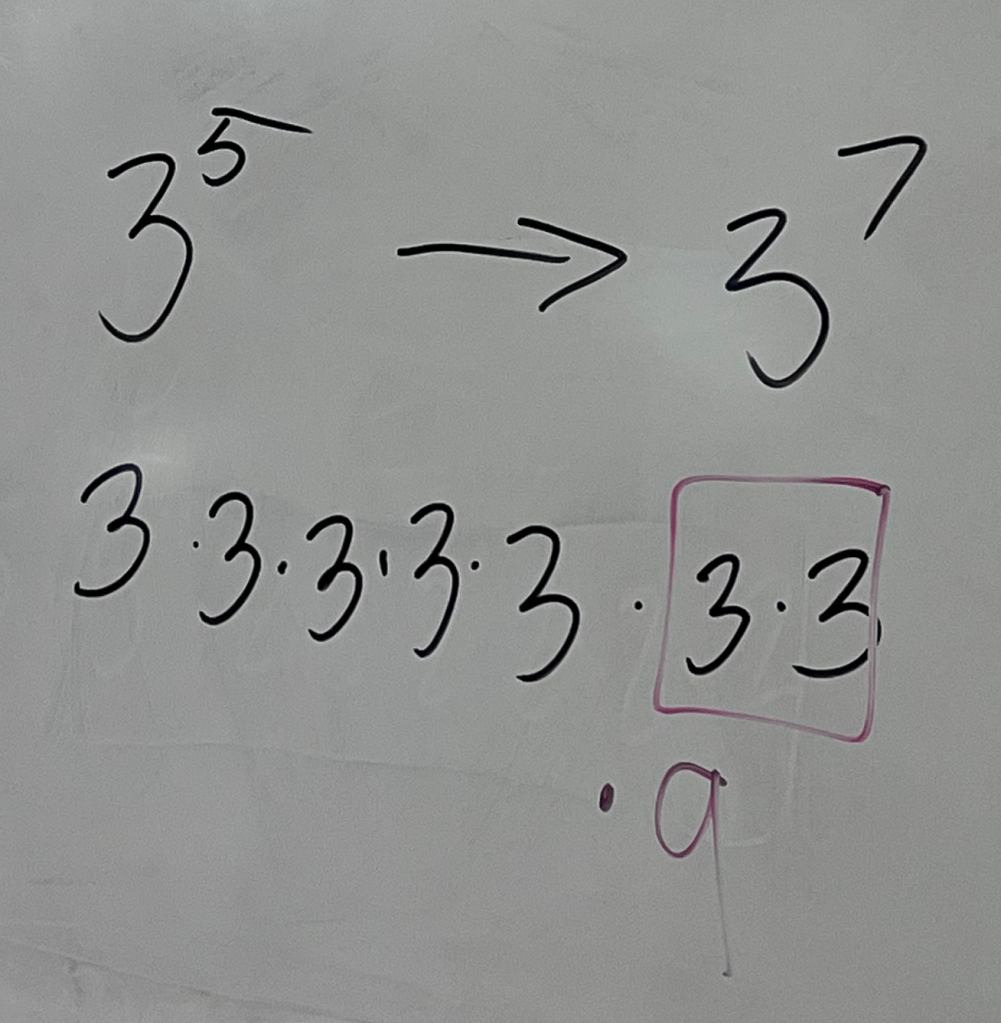 3⁵ → 3⁷
3·3·3·3·3·3·3
·9